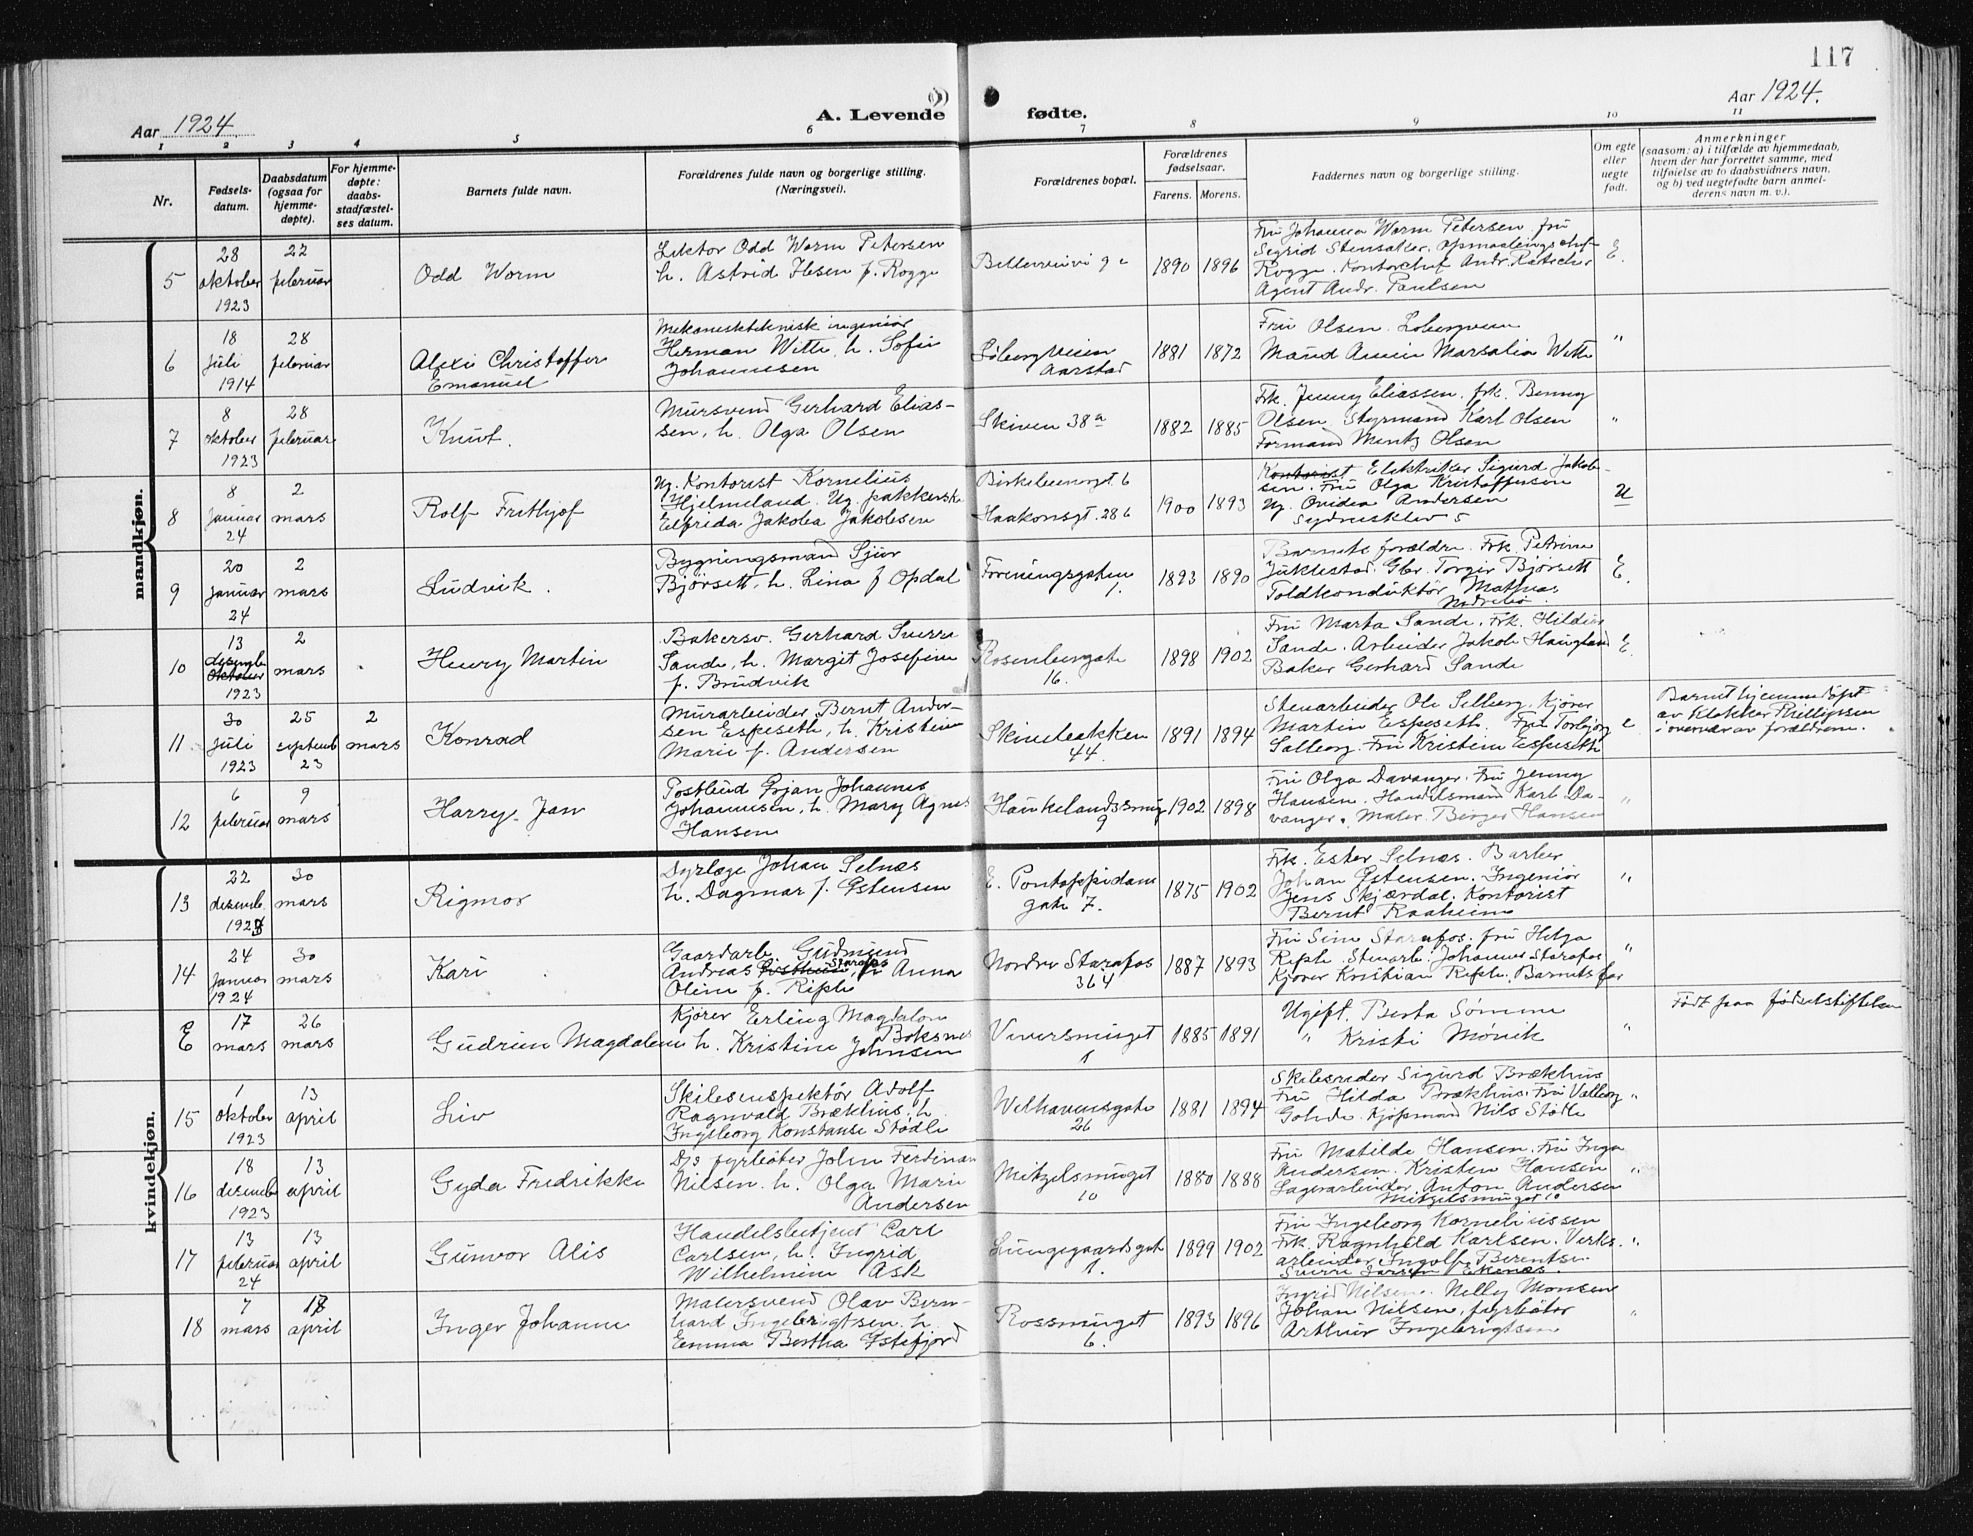 117
Aar 1924.
A. Levende
fødte.
Aar 1924.
1 2 3 4 5 6 7 8 9 10 11
Nr.
Fødsels-
datum.
Daabsdatum
(ogsaa for
hjemme-
døpte).
For hjemme-
døpte:
daabs-
stadfæstel-
ses datum.
Barnets fulde navn.
Forældrenes fulde navn og borgerlige stilling.
(Næringsvei).
Forældrenes bopæl.
Forældrenes
fødselsaar.
Farens. Morens.
Faddernes navn og borgerlige stilling.
Om egte
eller
uegte
født.
Anmerkninger
(saasom: a) i tilfælde av hjemmedaab,
hvem der har forrettet samme, med
tilføielse av to daabsvidners navn,
og b) ved uegtefødte barn anmel-
derens navn m. v.).
mandkjøn.
5
28
oktober
1923
22
februar
Odd Worm
Lektor Odd Worm Petersen
h. Astrid Ibsen f. Rogge
1890 1896
Fru Johanna Worm Petersen fru
Sigrid Stensaker, Opmaalingschef
Rogge. Kontorchef Andr.
Agent Andr. Paulsen
E.
6
18
juli
1914
28
februar
Alexi Christoffer
Emanuel
Mekanisktekniskingeniør
Herman Witte, h. Sofie
Johannesen
Løbergveien
Aarstad
1881 1872
Fru Olsen. Løbergveien
Maud Annie Marsalia Witte
"
7
8
oktober
1923
28
februar
Knut.
Mursvend Gerhard Elias-
sen, h. Olga Olsen
Skiven 38a
1882 1885
Frk. Jenny Eliassen, frk. Benny
Olsen. Styrmand Karl Olsen
Formand Mentz Olsen
"
8
8
januar
24
2
mars
Rolf Frithjof
Ug. Kontorist Kornelius
Hjelmeland. Ug. pakkersk
Elfrida Jakoba Jakobsen
Birkelundsgt. 6
Haakonsgt. 28 b
1900 1893
Kontorist Elektriker Sigurd Jakob-
sen. Fru Olga Kristoffersen
Ug. Ovidia Andersen
Sydneskleiv 5
U
9
20
januar
24
2
mars
Ludvik.
Bygningsmand Sjur
Bjørsett, h. Lina f Opdal
Foreningsgaten
1.
1893 1890
Barnets forældre. Frk. Petrine
Juklestad. Gbr. Torgir Bjørsett
Toldkonduktør Mathias
Nedrebø.
E.
10
13
desembr
oktober
1923
2
mars
Henry Martin
Bakersv. Gerhard Sverre
Sande, h. Margit Josefine
f. Brudvik
Rosenbergate
16.
1898 1902
Fru Marta Sande. Frk. Hildur
Sande. Arbeider Jakob Haugland
Baker Gerhard Sande
E.
11
30
juli
1923
25
septemb
23
2
mars
Konrad
Murarbeider Bernt Ander-
sen Espeseth, h. Kristine
Marie f. Andersen
Skivebakken
44.
1891 1894
Stenarbeider Ole Selberg. Kjører
Martin Espeseth. Fru Torbjørg
Salberg. Fru Kristine Espeseth
e
Barnet hjemmedøpt
av Klokker Phillipsen
i overvær av forældrene.
12
6
februar
9
mars
Harry Jan
Postbud Ørjan Johannes
Johannesen, h. Mary Agnes
Hansen
Haukelandssmug
9
1902 1898
Fru Olga Davanger. Fru Jenny
Hansen. Handelsmand Karl Da-
vanger. Maler Birger Hansen
"
kvindekjøn.
13
22
desemb.
1923
30
mars
Rigmor
Dyrlæge Johan Selnæs
h. Dagmar f. Østensen
E. Pontoppidans
gate 7.
1875 1902
Frk. Ester Selnæs. Barber
Johan Østensen. Ingeniør
Jens Skjærdal. Kontorist
Bernt Raaheim
"
14
24
januar
1924
30
mars
Kari
Gaardarb. Gudmund
Andreas Starefos, h Anna
Oline f. Riple
Nordre Starefos
364
1887 1893
Fru Sine Starefos. fru Helga
Riple. Stenarb. Johannes Starefos
Kjører Kristian Riple. Barnets far
"
E
17
mars
26
mars
Gudrun Magdalene
Kjører Erling Magdalon
Boksnes
h. Kristine Johnsen
Veversmuget
1
1885 1891
Ugift. Berta Sømme
" Kristi Mønik
"
Født paa fødselstiftelsen
15
1
oktober
1923
13
april
Liv
Skibsinspektør Adolf
Ragnvald Brækhus, h.
Ingeborg Konstanse Stødle
Welhavensgate
26
1881 1894
Skibsreder Sigurd Brækhus
Fru Hilda Brækhus. Fru Valborg
Gohde. Kjøpmand Nils Stødle
"
16
18
desemb
1923
13
april
Gyda Fredrikke
D/s fyrbøter John Ferdinan
Nilsen. h. Olga Marie
Andersen
Mitzelsmuget
10
1880 1888
Fru Matilde Hansen. Fru Inga
Andersen. Kristen Hansen
Lagerarbeider Anton Andersen
Mitzelsmuget 10
"
17
13
februar
24
13
april
Gunvor Alis
Handelsbetjent Carl
Carlsen, h. Ingrid
Wilhelmine Ask
Lungegaardsgat
1.
1899 1902
Fru Ingeborg Korneliussen
Frk. Ragnhild Karlsen. Verks-
arbeider Ingolf Berentsen
Sverre Larsen Ekenes.
"
18
7
mars
april
Inger Johanne
Malersvend Olav Bern-
hard Ingebrigtsen. h.
Emma Bertha Østefjord
Rossmuget
6.
1893 1896
Ingrid Nilsen. Nelly Monsen
Johan Nilsen, fyrbøter
Arthur Ingebrigtsen
"